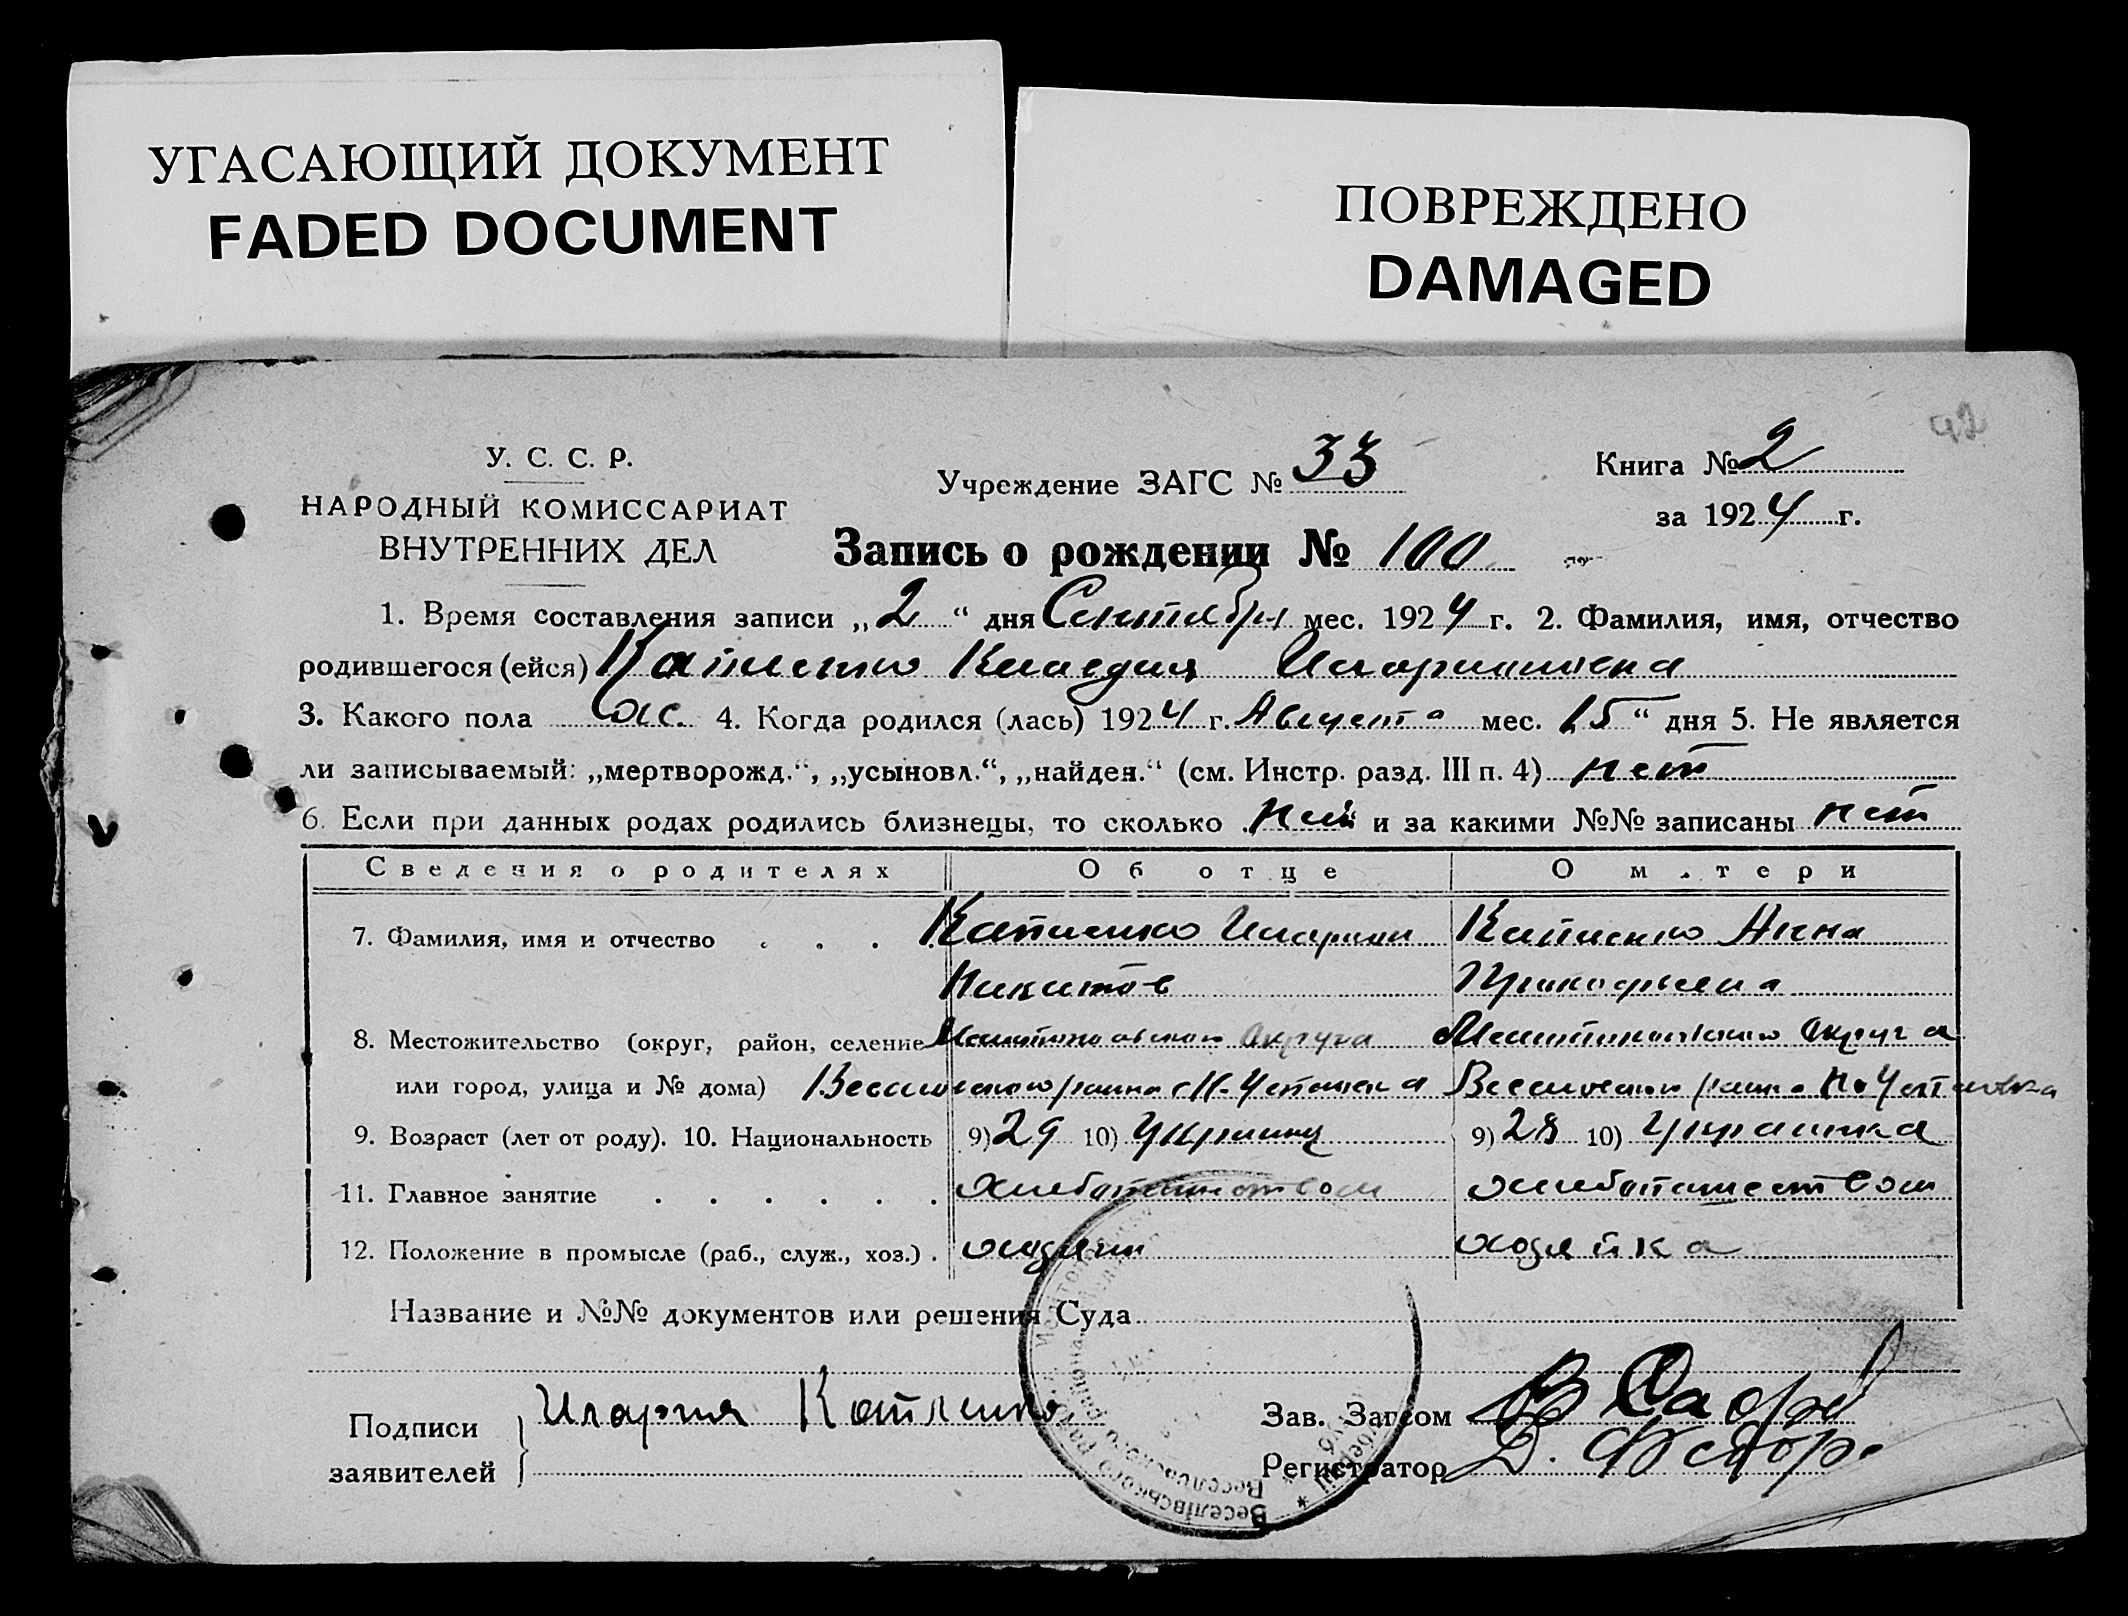 УГАСАЮЩИЙ ДОКУМЕНТ
FADED DOCUMENT
ПОВРЕЖДЕНО
DAMAGED
92
У. С. С. Р.
НАРОДНЫЙ КОМИССАРИАТ
ВНУТРЕННИХ ДЕЛ
Учреждение ЗАГС № 33
Книга № 2
за 1924 г.
Запись о рождении № 100
1. Время составления записи „2“ дня Сентября мес. 1924 г. 2. Фамилия, имя, отчество
родившегося (ейся) Клавдия
3. Какого пола жс. 4. Когда родился (лась) 1924 г. Августа мес. 15“ дня 5. Не является
ли записываемый: „мертворожд.“, „усыновл.“, „найден.“ (см. Инстр. разд. III п. 4) нет
6. Если при данных родах родились близнецы, то сколько нет и за какими №№ записаны нет
Сведения о родителях Об отце О матери
7. Фамилия, имя и отчество . . . . Иларион Анна
Никитов Прокофьевна
8. Местожительство (округ, район, селение Мелитопольского Округа Мелитопольского Округа
или город, улица и № дома) Веселовского района Веселовского района
9. Возраст (лет от роду). 10. Национальность 9) 29 10) Украинец 9) 28 10) Украинка
11. Главное занятие . . . . . . хлебопашеством хлебопашеством
12. Положение в промысле (раб., служ., хоз.) . хозяин хозяйка
Название и №№ документов или решения Суда
Подписи
заявителей
Зав. Загсом
Регистратор
Веселівського